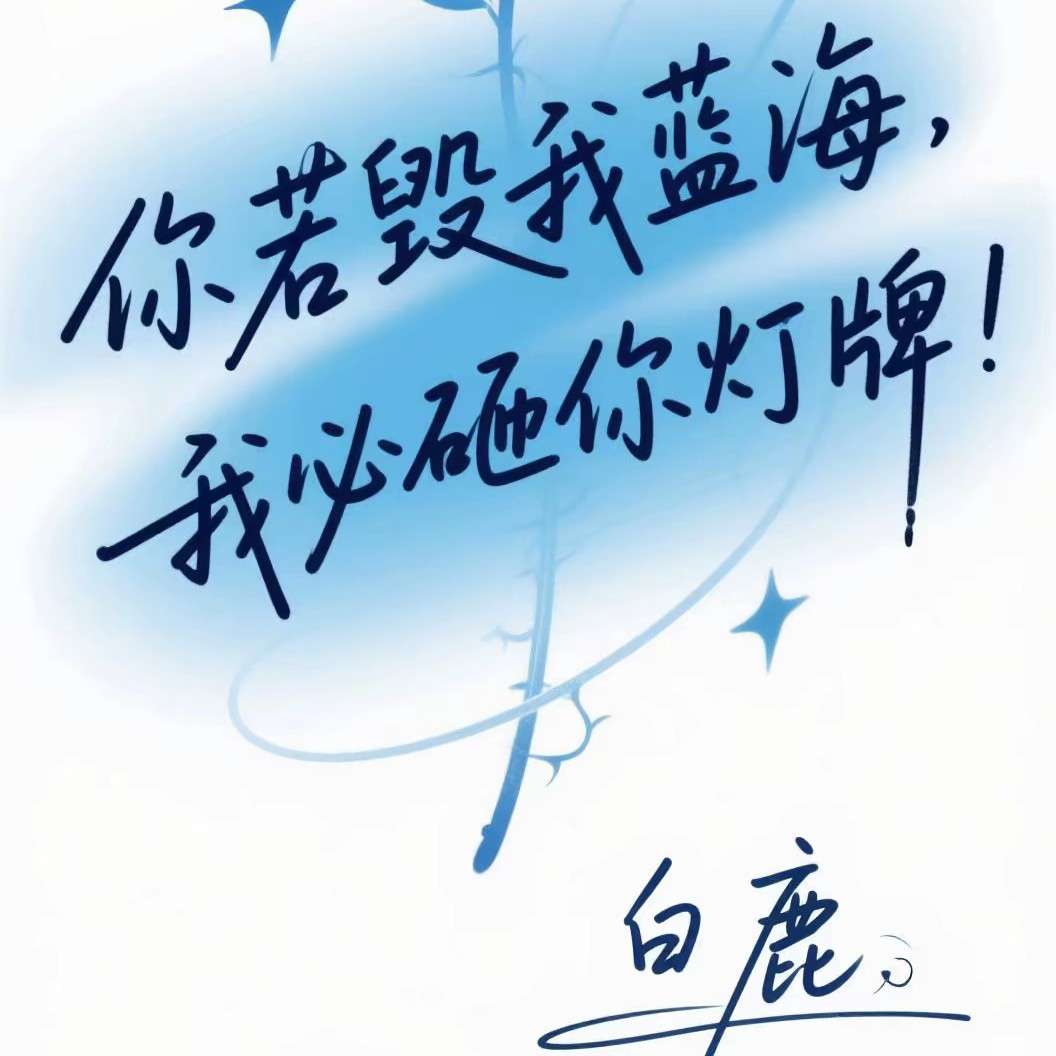 你若毁我蓝海,
我必砸你灯牌!
白鹿